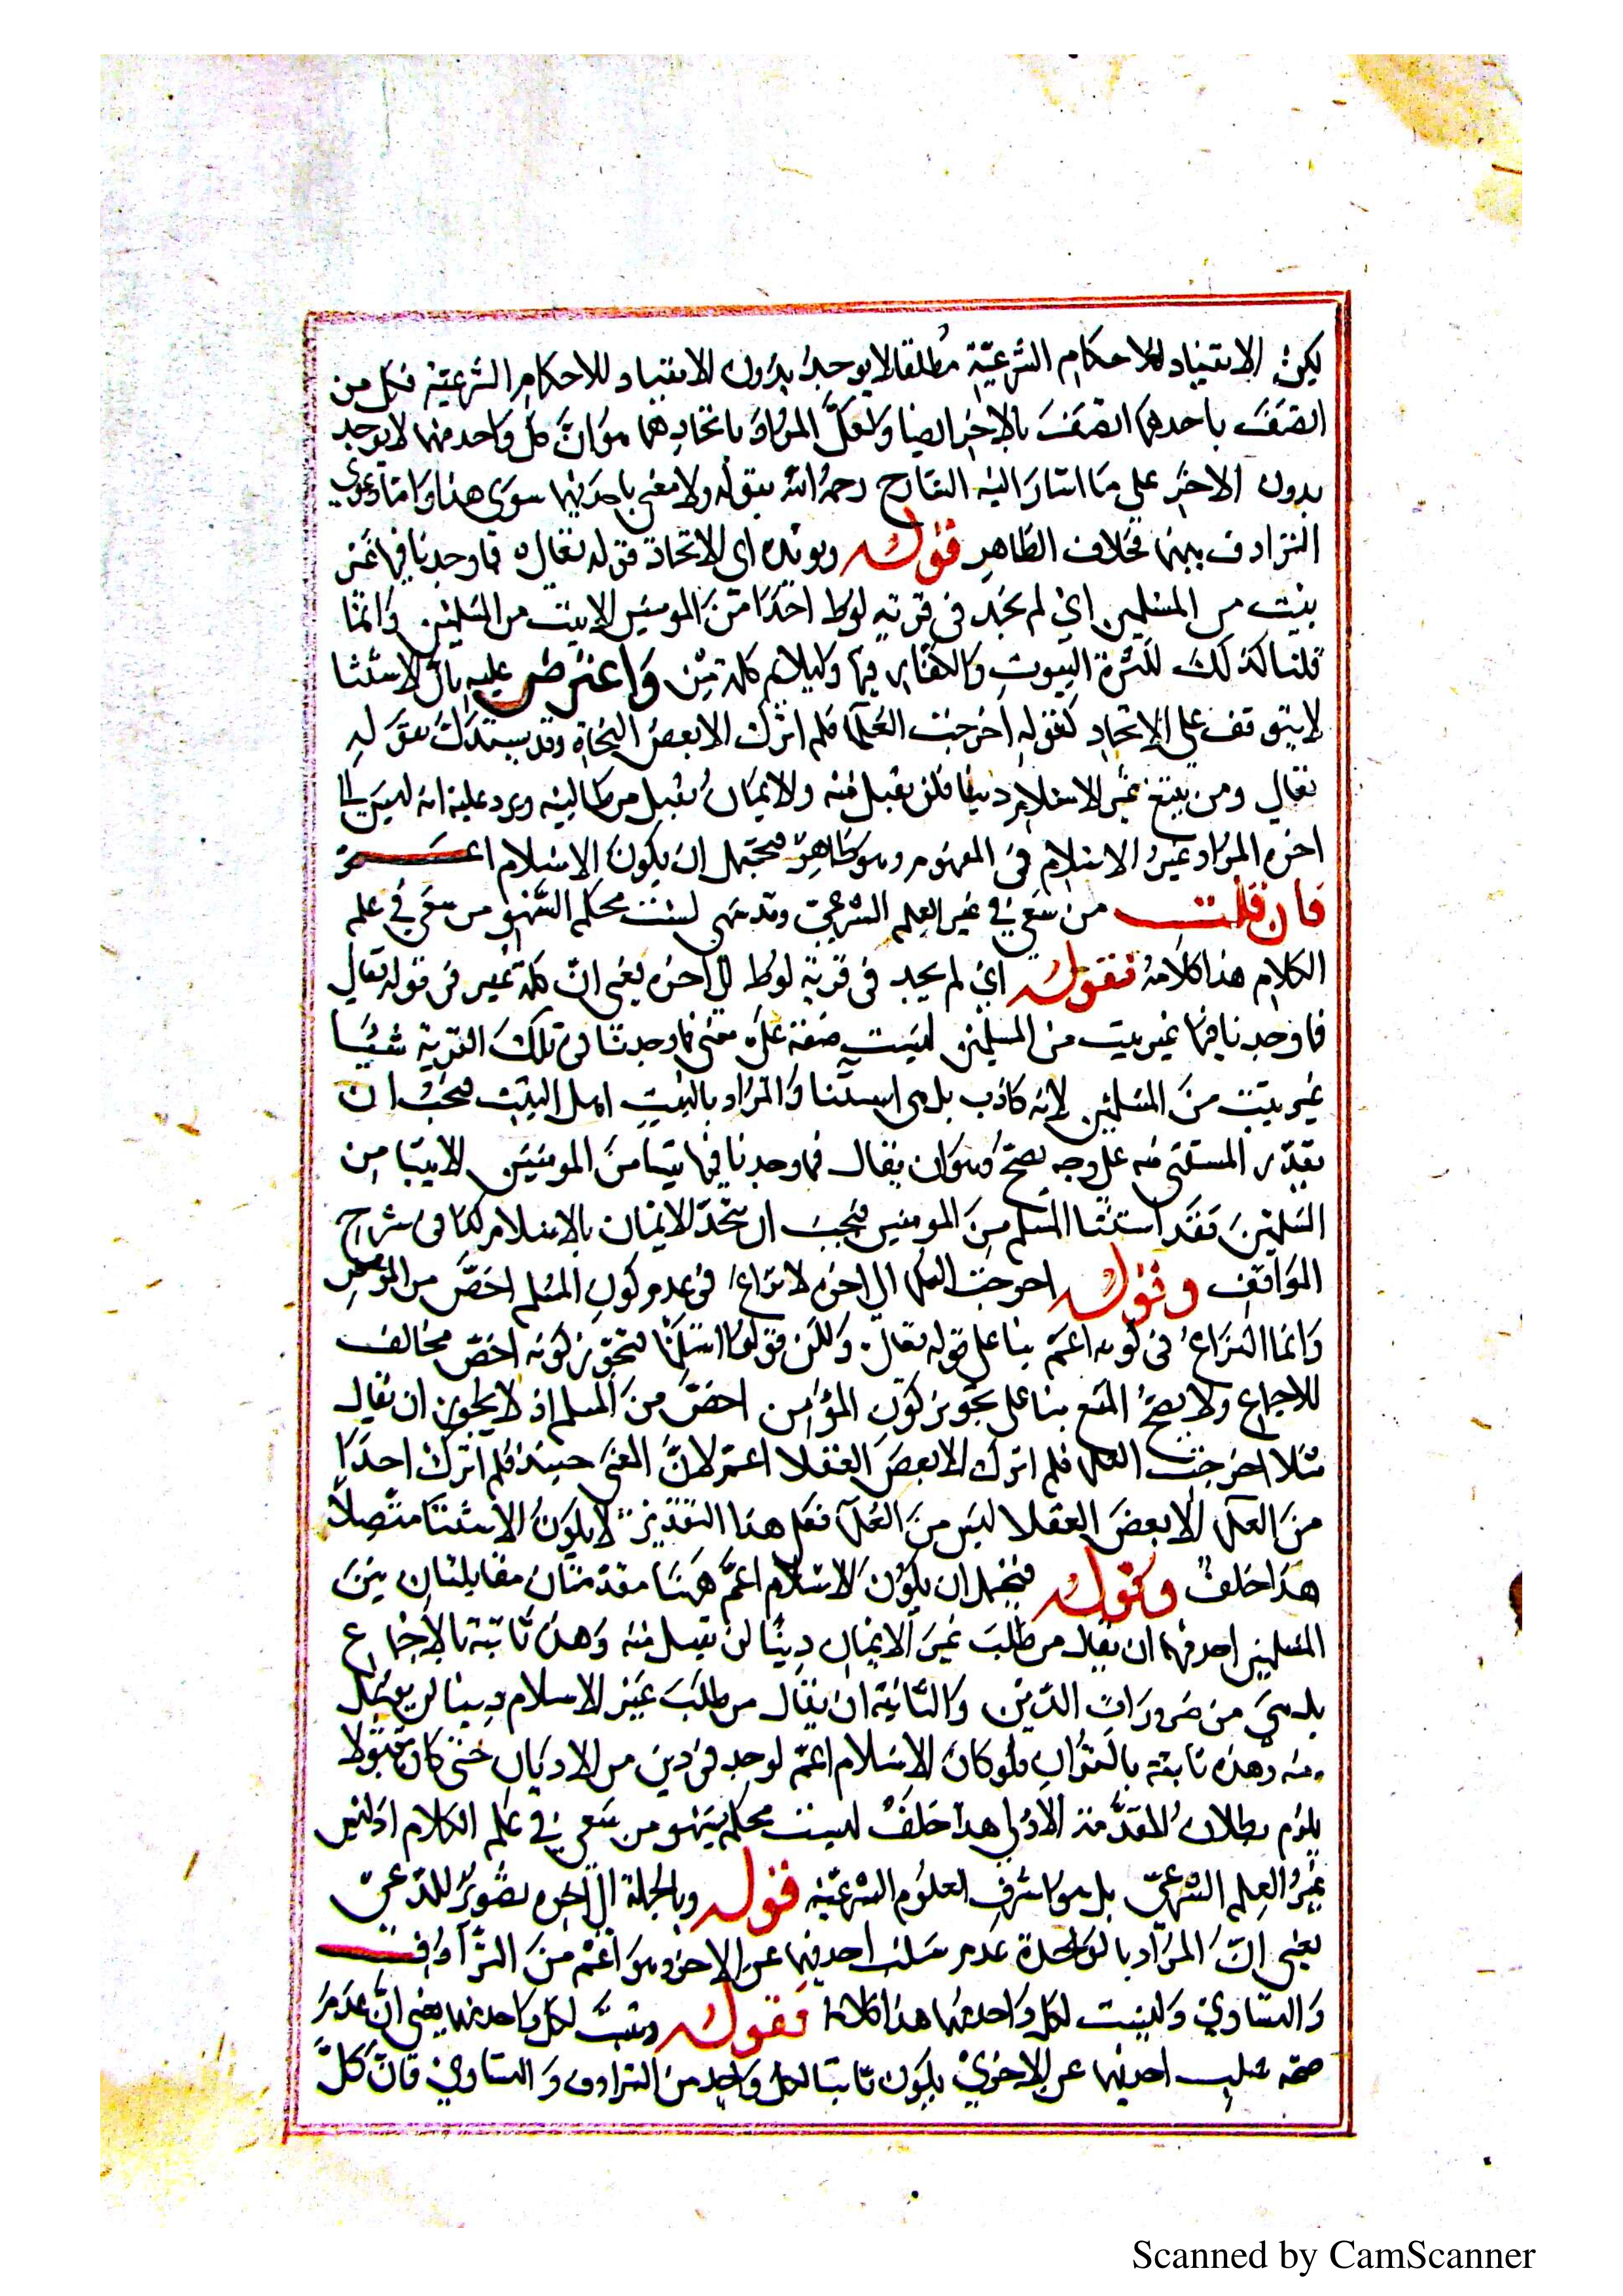 لكن الانقياد للاحكام الشرعية مطلقا لا يوجد بدون الانقياد للاحكام الشرعية فكل من
اتصف باحدهما اتصف بالاخر ايضا ولعل المراد باتحادهما هو ان كل واحد منهما لا يوجد
بدون الاخر على ما اشار اليه الشارح رحمه الله بقوله ولا معنى باحدتهما سوى هذا واما دعوى
الترادف بينهما فخلاف الظاهر قوله ويؤيده اى الاتحاد قوله تعالى فما وجدنا فيها غير
بيت من المسلمين اي لم نجد فى قرية لوط احدا من المومنين الا بيت من المسلمين وانما
قلنا كذلك لكثرة البيوت والكفار فيها وليلايم كلمة من واعترض عليه بان الاستثنا
لا يتوقف على الاتحاد كقوله اخرجت العلما فلم اترك الا بعض النحاة وقد يستدل بقوله
تعالى ومن يبتغ غير الاسلام دينا فلن يقبل منه والايمان يقبل من طالبيه ويرد عليه انه ليس الى
اخره المراد غير الاسلام فى المفهوم وهو ظاهر فيحتمل ان يكون الاسلام اعم
فان قلت من سعى في غير العلم الشرعي وقد سهى ليست محكم السهو من سعى في علم
الكلام هذا كلامه فقوله اي لم يجد فى قرية لوط الى اخره يعنى ان كلمة غير فى قوله تعالى
فما وجدنا فيها غير بيت من المسلمين ليست صفة على معنى فما وجدنا فى تلك القرية شيئا
غير بيت من المسلمين لانه كاذب بل هى استثنا والمراد بالبيت اهل البيت فيجب ان
يقدر المستثنى منه على وجه يصح وهو ان يقال فما وجدنا فيها بيتا من المومنين الا بيتا من
المسلمين فقد استثنا المسلم من المومنين فيجب ان يتحد الايمان بالاسلام كذا فى شرح
المواقف وقوله اخرجت العلما الى اخره لا نزاع فى عدم كون المسلم اخص من المؤمن
وانما النزاع فى كونه اعم بنا على قوله تعالى ولكن قولوا اسلمنا فتجويز كونه اخص مخالف
للاجماع ولا يصح المنع بنا على تجويز كون المؤمن اخص من المسلم اذ لا يجوز ان يقال
مثلا اخرجت العلما فلم اترك الا بعض العقلا اعم لان المعنى حينئذ فلم اترك احدا
من العلما الا بعض العقلا ليس من العلما فعلى هذا التقدير لا يكون الاستثنا متصلا
هذا خلف وقوله فيحتمل ان يكون الاسلام اعم ههنا مقدمتان مقابلتان بين
المسلمين احدهما ان يقال من طلب غير الايمان دينا لن يقبل منه وهذه ثابتة بالاجماع
بل هي من ضرورات الدين والثانية ان يقال من طلب غير الاسلام دينا لن يقبل
منه وهذه ثابتة بالقران فلو كان الاسلام اعم لوجد فى دين من الاديان حتى كان مقبولا
يلزم بطلان المقدمة الاولى هذا خلف ليست محكم بسهو من سعى في علم الكلام اذ ليس
غير العلم الشرعي بل هو اشرف العلوم الشرعية قوله وبالجملة الى اخره تصوير للدعى
يعنى ان المراد بالوحدة عدم سلب احدهما عن الاخر وهو اعم من الترادف
والتساوي وليست لكل واحد منهما هذا كلامه فقوله وتثبت لكل واحد منهما يعنى ان عدم
صحة سلب احدهما عن الاخرى يكون ثابتا لكل واحد من الترادف والتساوي فان كل
Scanned by CamScanner